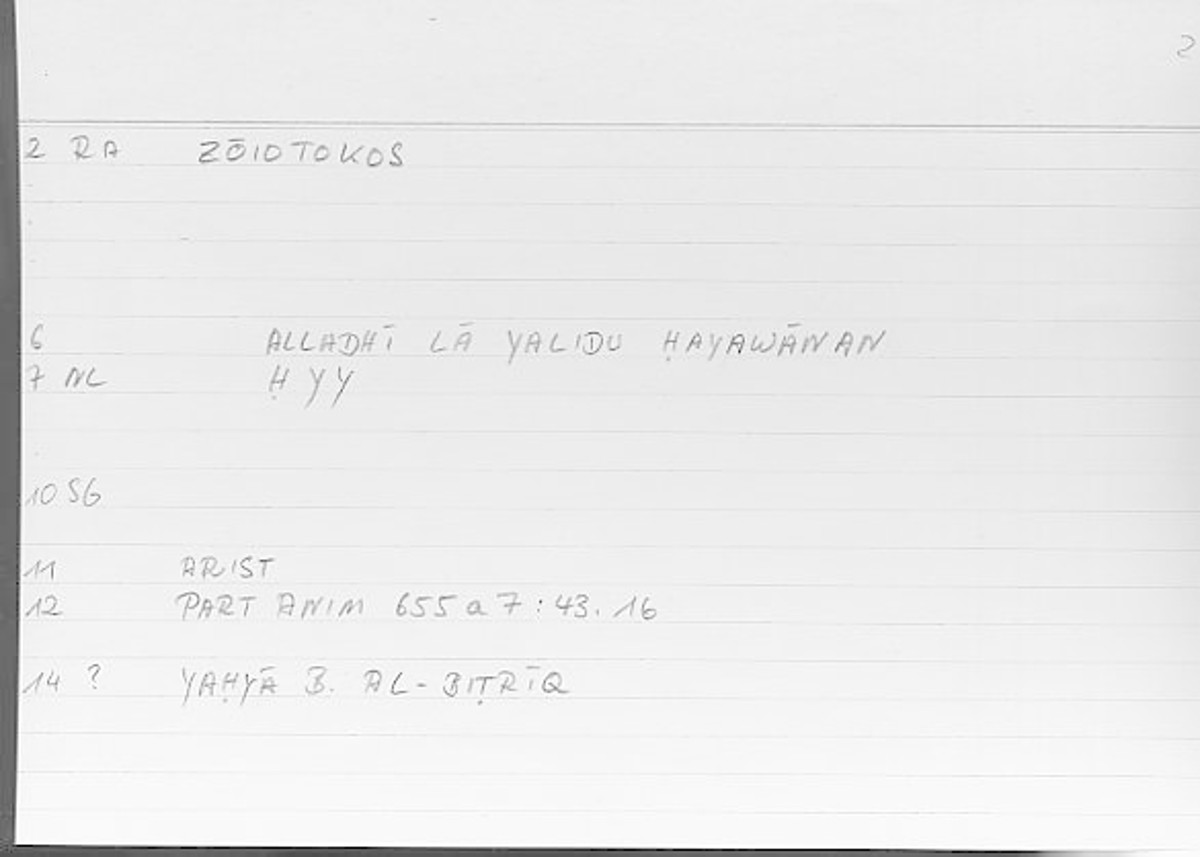 2
2 RA ZŌIOTOKOS
6 ALLADHĪ LĀ YALIDU ḤAYAWĀNAN
7 NL ḤYY
10 SG
11 ARIST
12 PART ANIM 655 a 7 : 43. 16
14 ? YAḤYĀ B. AL-BIṬRĪQ